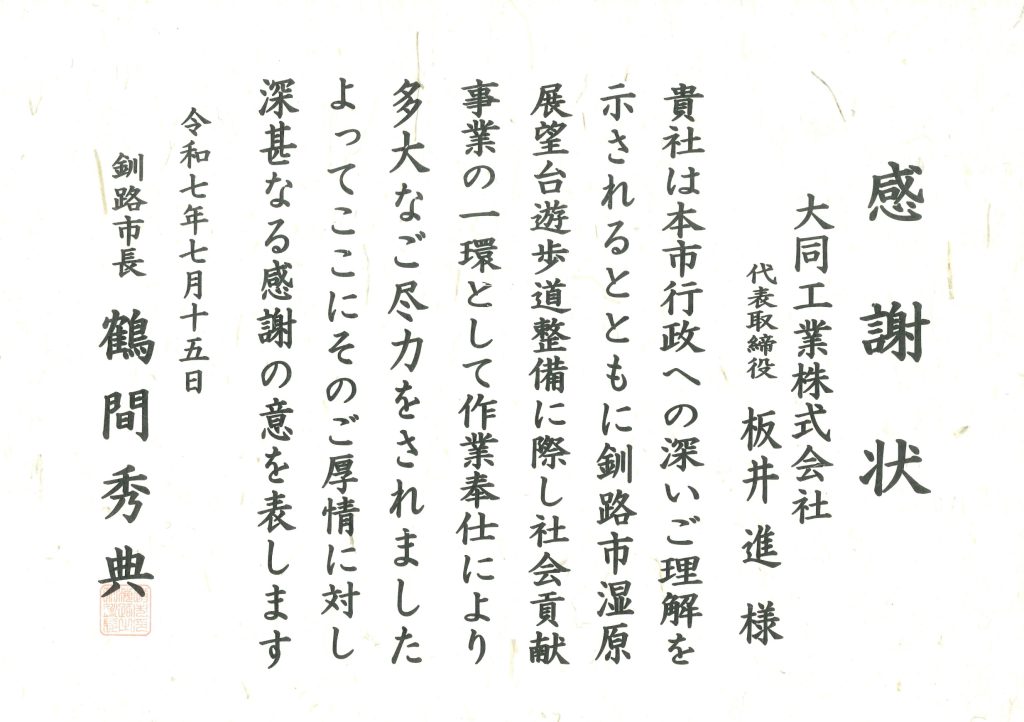 感謝状
大同工業株式会社
代表取締役 板井進様
貴社は本市行政への深いご理解を
示されるとともに釧路市湿原
展望台遊歩道整備に際し社会貢献
事業の一環として作業奉仕により
多大なご尽力をされました
よってここにそのご厚情に対し
深甚なる感謝の意を表します
令和七年七月十五日
釧路市長 鶴間秀典